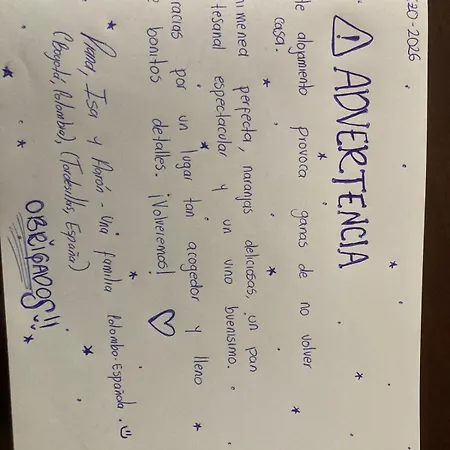 20-2026
⚠ ADVERTENCIA
te alojamiento provoca ganas de no volver
casa.
himenea perfecta, naranjas deliciosas, un pan
tesanal espectacular y un vino buenísimo.
racias por un lugar tan acogedor y lleno
e bonitos detalles. ¡Volveremos! ♡
Isa y Aarón - Una familia Colombo-Española. ☺
(Bogotá, Colombia), (Tordesillas, España)
OBRIGADOS!!